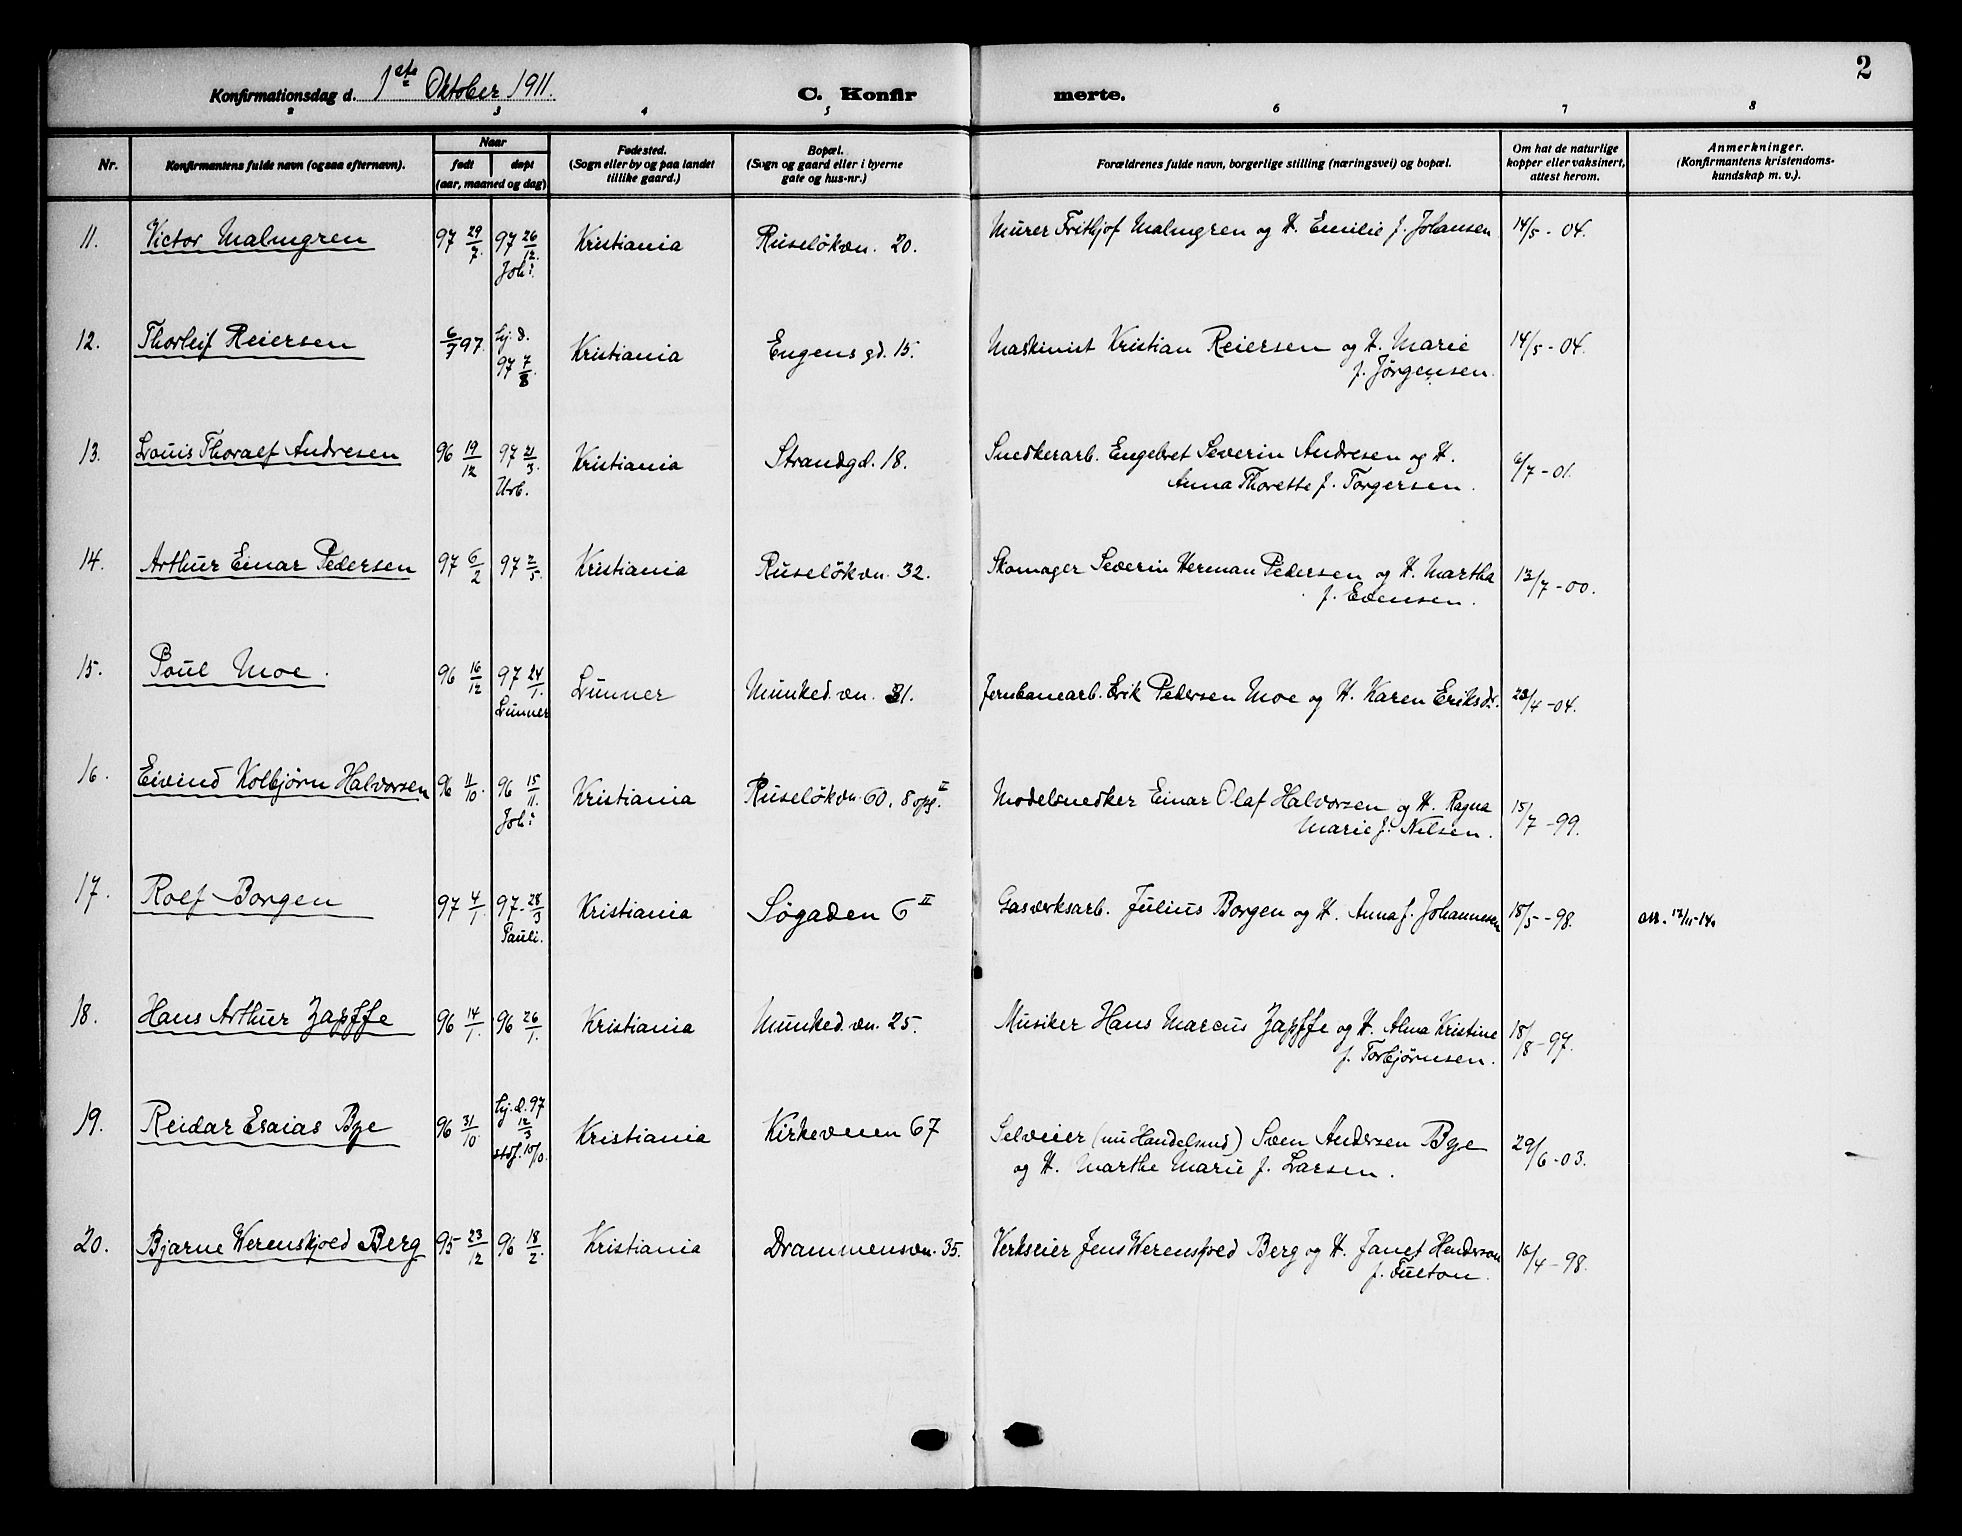 2
Konfirmationsdag d. 1ste Oktober 1911. C. Konfirmerte.
2 3 4 5 6 7 8
Nr. Konfirmantens fulde navn (ogsaa efternavn). Naar født døpt (aar, maaned og dag) Fødested. (Sogn eller by og paa landet tillike gaard.) Bopæl. (Sogn og gaard eller i byerne gate og hus-nr.) Forældrenes fulde navn, borgerlige stilling (næringsvei) og bopæl. Om hat de naturlige kopper eller vaksinert, attest herom. Anmerkninger. (Konfirmantens kristendoms-kundskap m. v.).
11. Victor Malmgren 97 29/7 97 26/12. Joh: Kristiania Ruseløkvn. 20. Murer Frithjof Malmgren og H. Emilie f. Johansen 14/5 - 04.
12. Thorleif Reiersen 6/7 97. hj. d. 97 7/8. Kristiania Engens gd. 15. Maskinist Kristian Reiersen og H. Marie
f. Jørgensen. 14/5 - 04.
13. Louis Thoralf Andresen 96 19/12 97 21/3. Urb. Kristiania Strandgd. 18. Snedkerarb. Engebret Severin Andresen og H.
Anna Thorette f. Torgersen. 6/7 - 01.
14. Arthur Einar Pedersen 97 6/2 97 2/5. Kristiania Ruseløkvn. 32. Skomager Severin Herman Pedersen og H. Martha
f. Evensen. 13/7 - 00.
15. Poul Moe. 96 16/12 97 24/1. Lunner Lunner Munked. vn. 31. Jernbanearb. Erik Pedersen Moe og H. Karen Eriksdr. 23/4 - 04.
16. Eivind Kolbjørn Halvorsen 96 11/10. 96 15/11. Joh: Kristiania Ruseløkvn. 60, 8 opg. II Modelsnedker Einar Olaf Halvorsen og H. Ragna
Marie f. Nilsen. 15/7 - 99.
17. Rolf Borgen 97 4/1. 97 - 28/3 Pauli. Kristiania Søgaden 6 II Gasværksarb. Julius Borgen og H. Anna f. Johannesen 18/5 - 98. att. 12/11-14.
18. Hans Arthur Zapffe 96 14/1. 96 26/1. Kristiania Munked. vn. 25. Musiker Hans Marcus Zapffe og H. Alma Kristine
f. Torbjørnsen. 18/8 - 97.
19. Reidar Esaias Bye 96 31/10. hj. d. 97 12/3 stdf. 10/0. Kristiania Kirkeveien 67 Selveier (nu Handelsmd) Sven Andersen Bye
og H. Marthe Marie f. Larsen. 29/6 - 03.
20. Bjarne Werenskjold Berg 95 23/12 96 18/2. Kristiania Drammensvn. 35. Verkseier Jens Werenskjold Berg og H. Janet Henderson
f. Fulton. 16/4 - 98.